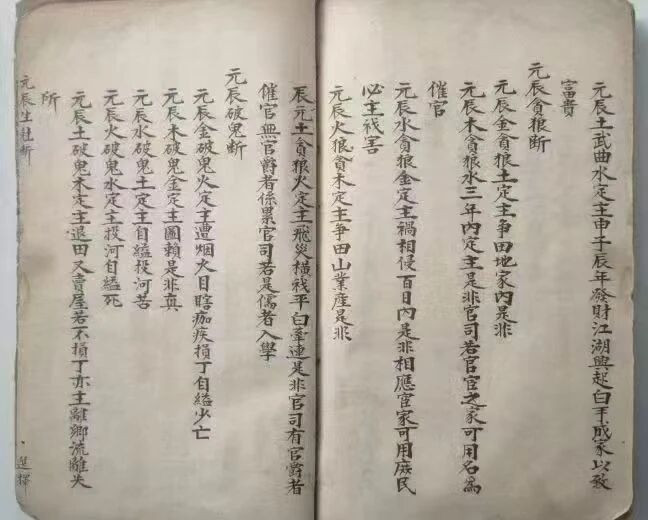 元辰土武曲水定主申子辰年發財江湖興起白手成家以致
富貴
元辰貪狼斷
元辰金貪狼土定主爭田地家內是非
元辰木貪狼水三年內定主是非官司若官宦之家可用名為
催官
元辰水貪狼金定主禍相侵百日內是非相應宦家可用庶民
必主戕害
元辰火狼貪木定主爭田山業産是非
辰元土貪狼火定主飛災橫戕平白牽連是非官司有官爵者
催官無官爵者係累官司若是儒者入學
元辰破鬼斷
元辰金破鬼火定主遭烟火目瞎痂疾損丁自縊少亡
元辰木破鬼金定主圖賴是非真
元辰水破鬼土定主自縊投河苦
元辰火破鬼水定主投河自縊死
元辰土破鬼木定主退田又賣屋若不損丁亦主離鄉流離失
所
元辰生尅斷
選擇